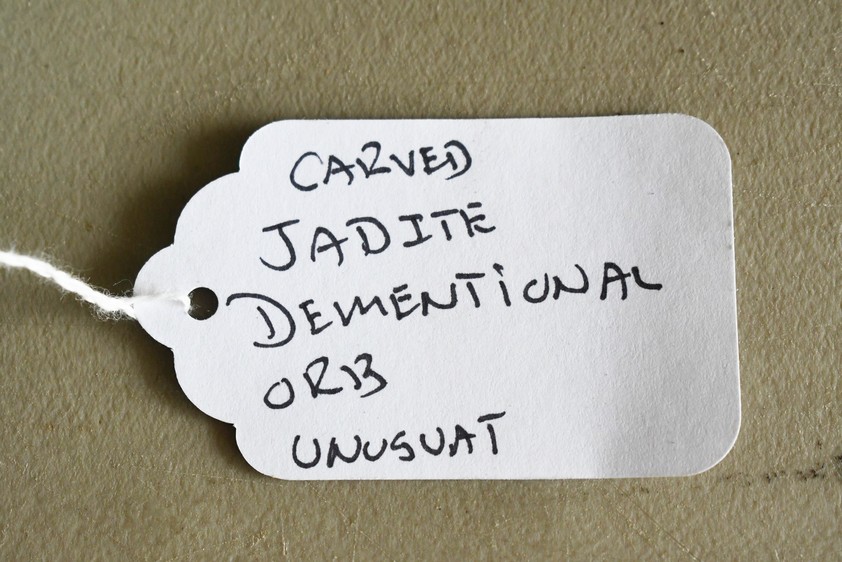 CARVED
JADITE
DEMENTIONAL
ORB
UNUSUAT